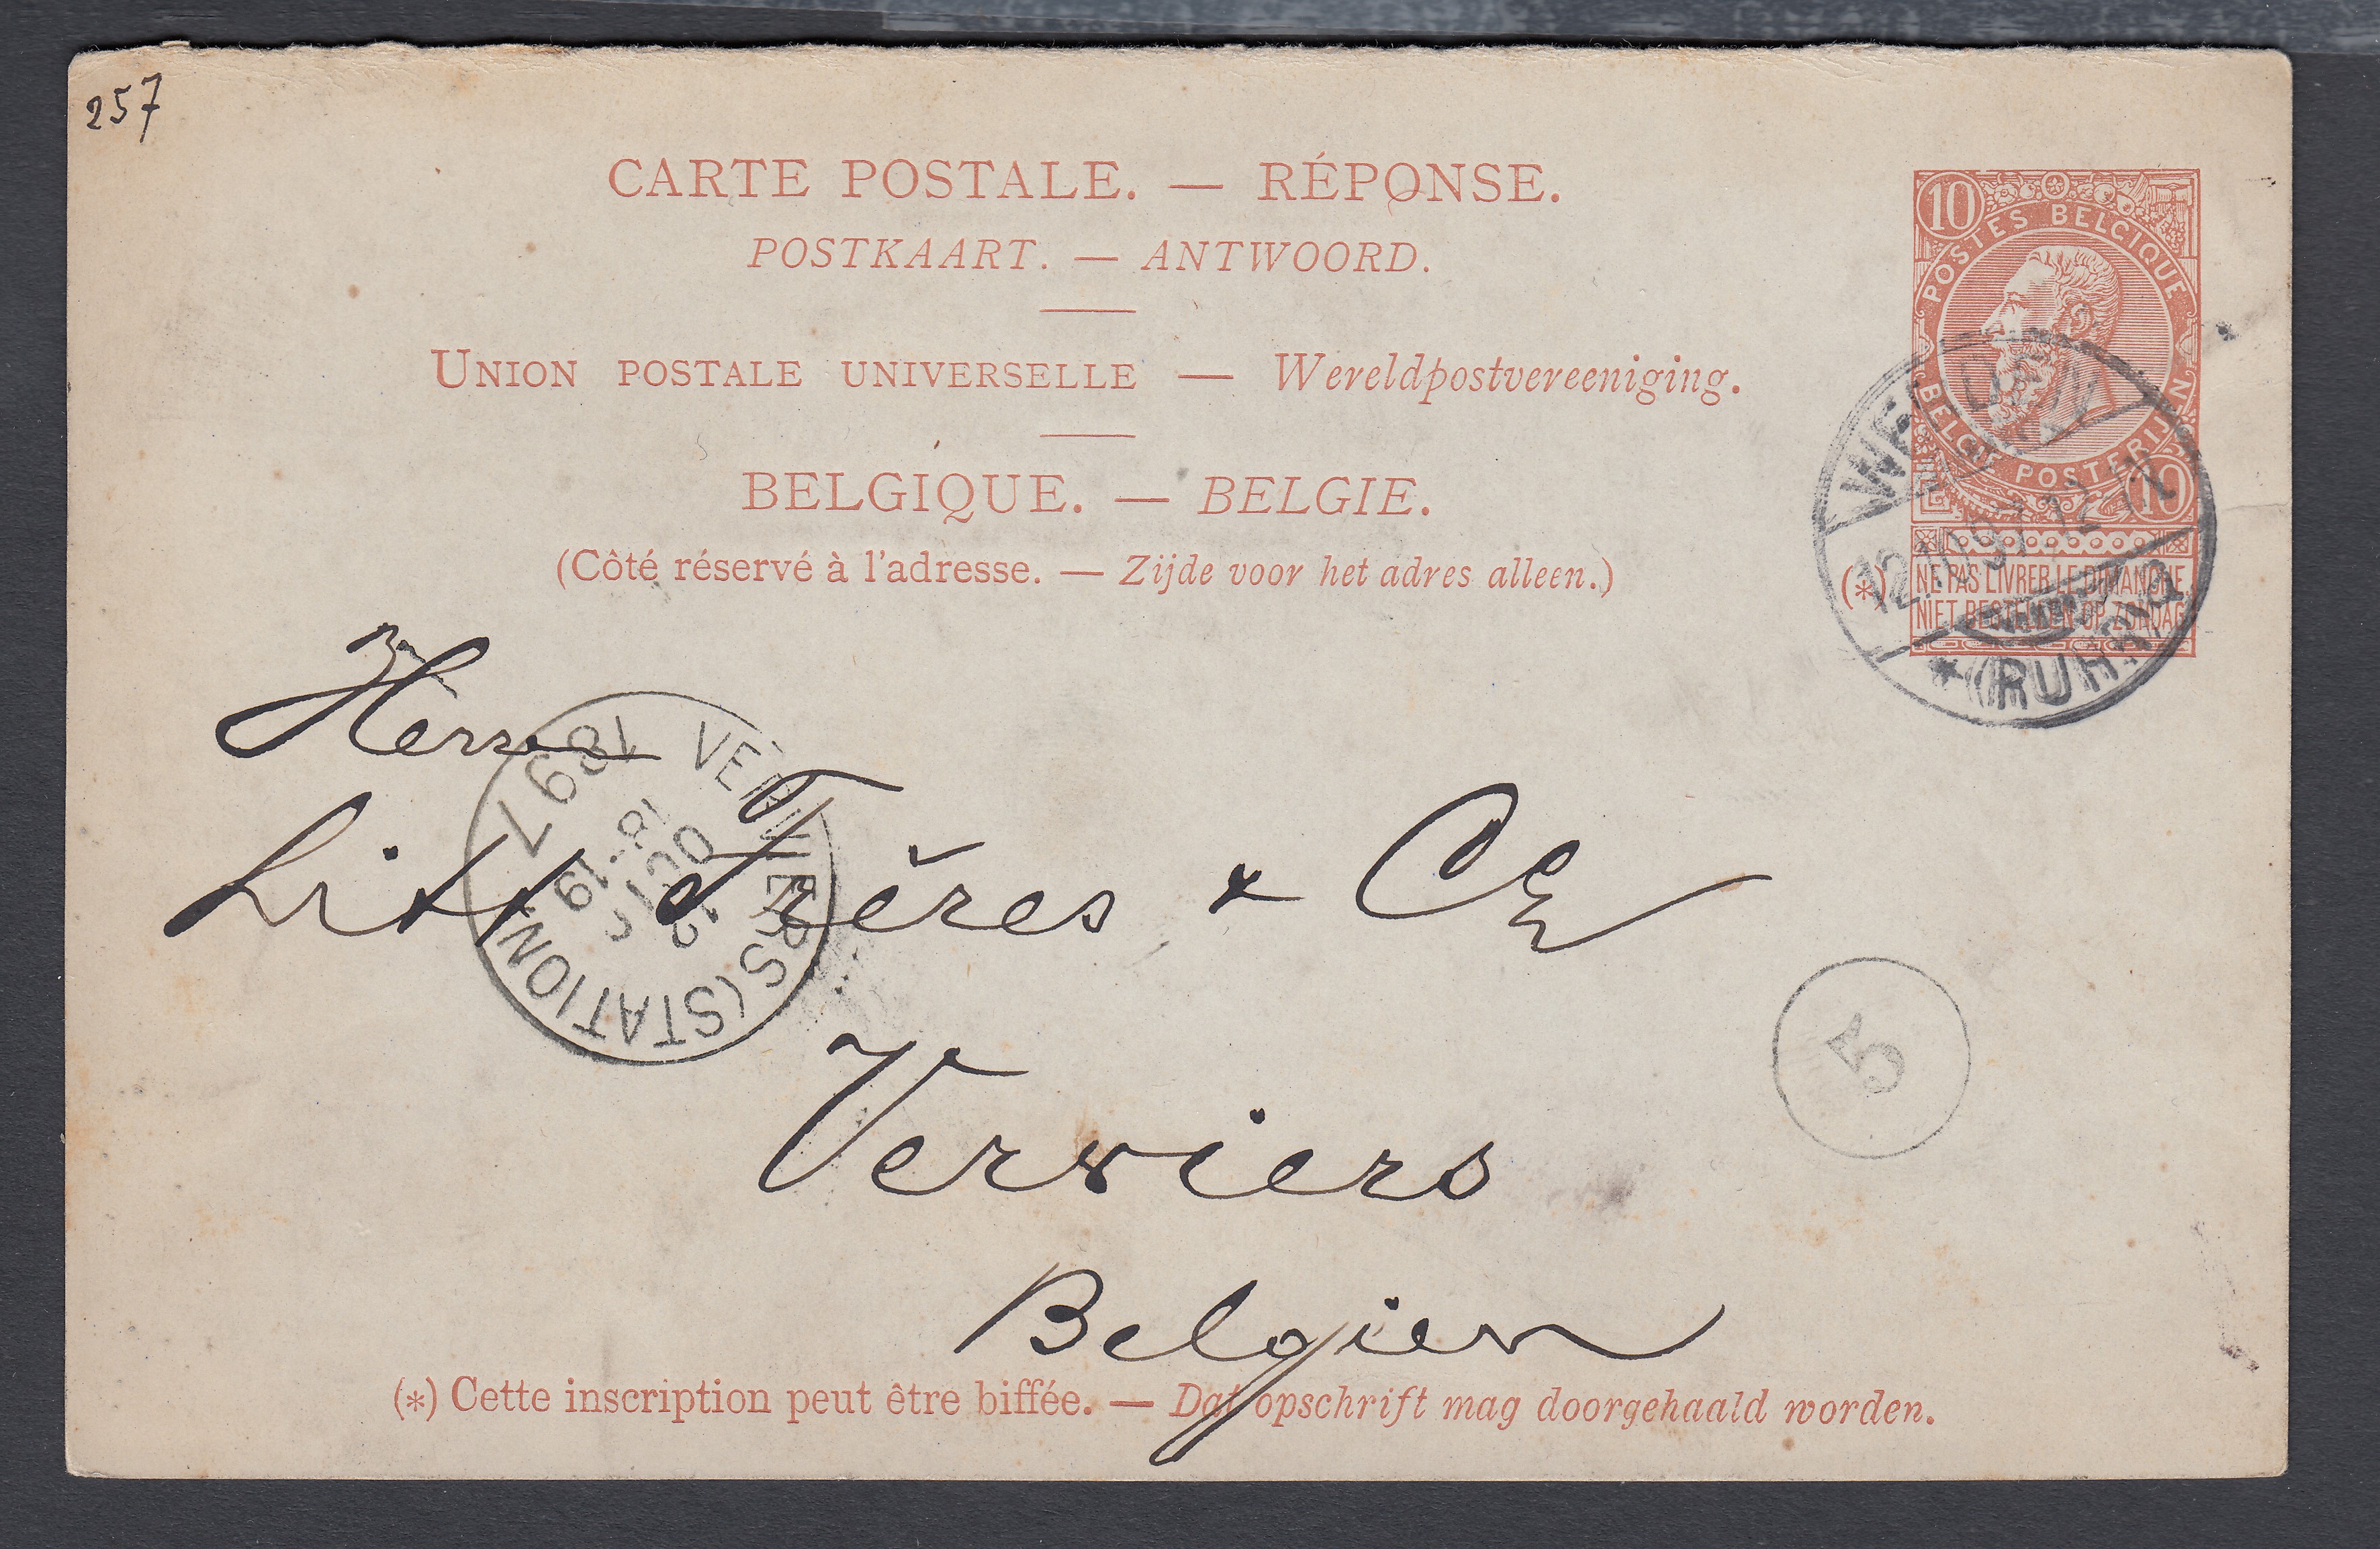 257
CARTE POSTALE. — RÉPONSE.
POSTKAART. — ANTWOORD.
UNION POSTALE UNIVERSELLE — Wereldpostvereeniging.
BELGIQUE. — BELGIE.
(Côté réservé à l'adresse. — Zijde voor het adres alleen.)
10
POSTES BELGIQUE
BELGIE POSTERIJEN
10
(*) NE PAS LIVRER LE DIMANCHE.
NIET BESTELLEN OP ZONDAG
12.10.97. 12-1N
* (RUHR)
Herren
Frères & Cie
Verviers
Belgien
VERVIERS (STATION)
12
OCT
18-19
1897
5
(*) Cette inscription peut être biffée. — Dat opschrift mag doorgehaald worden.